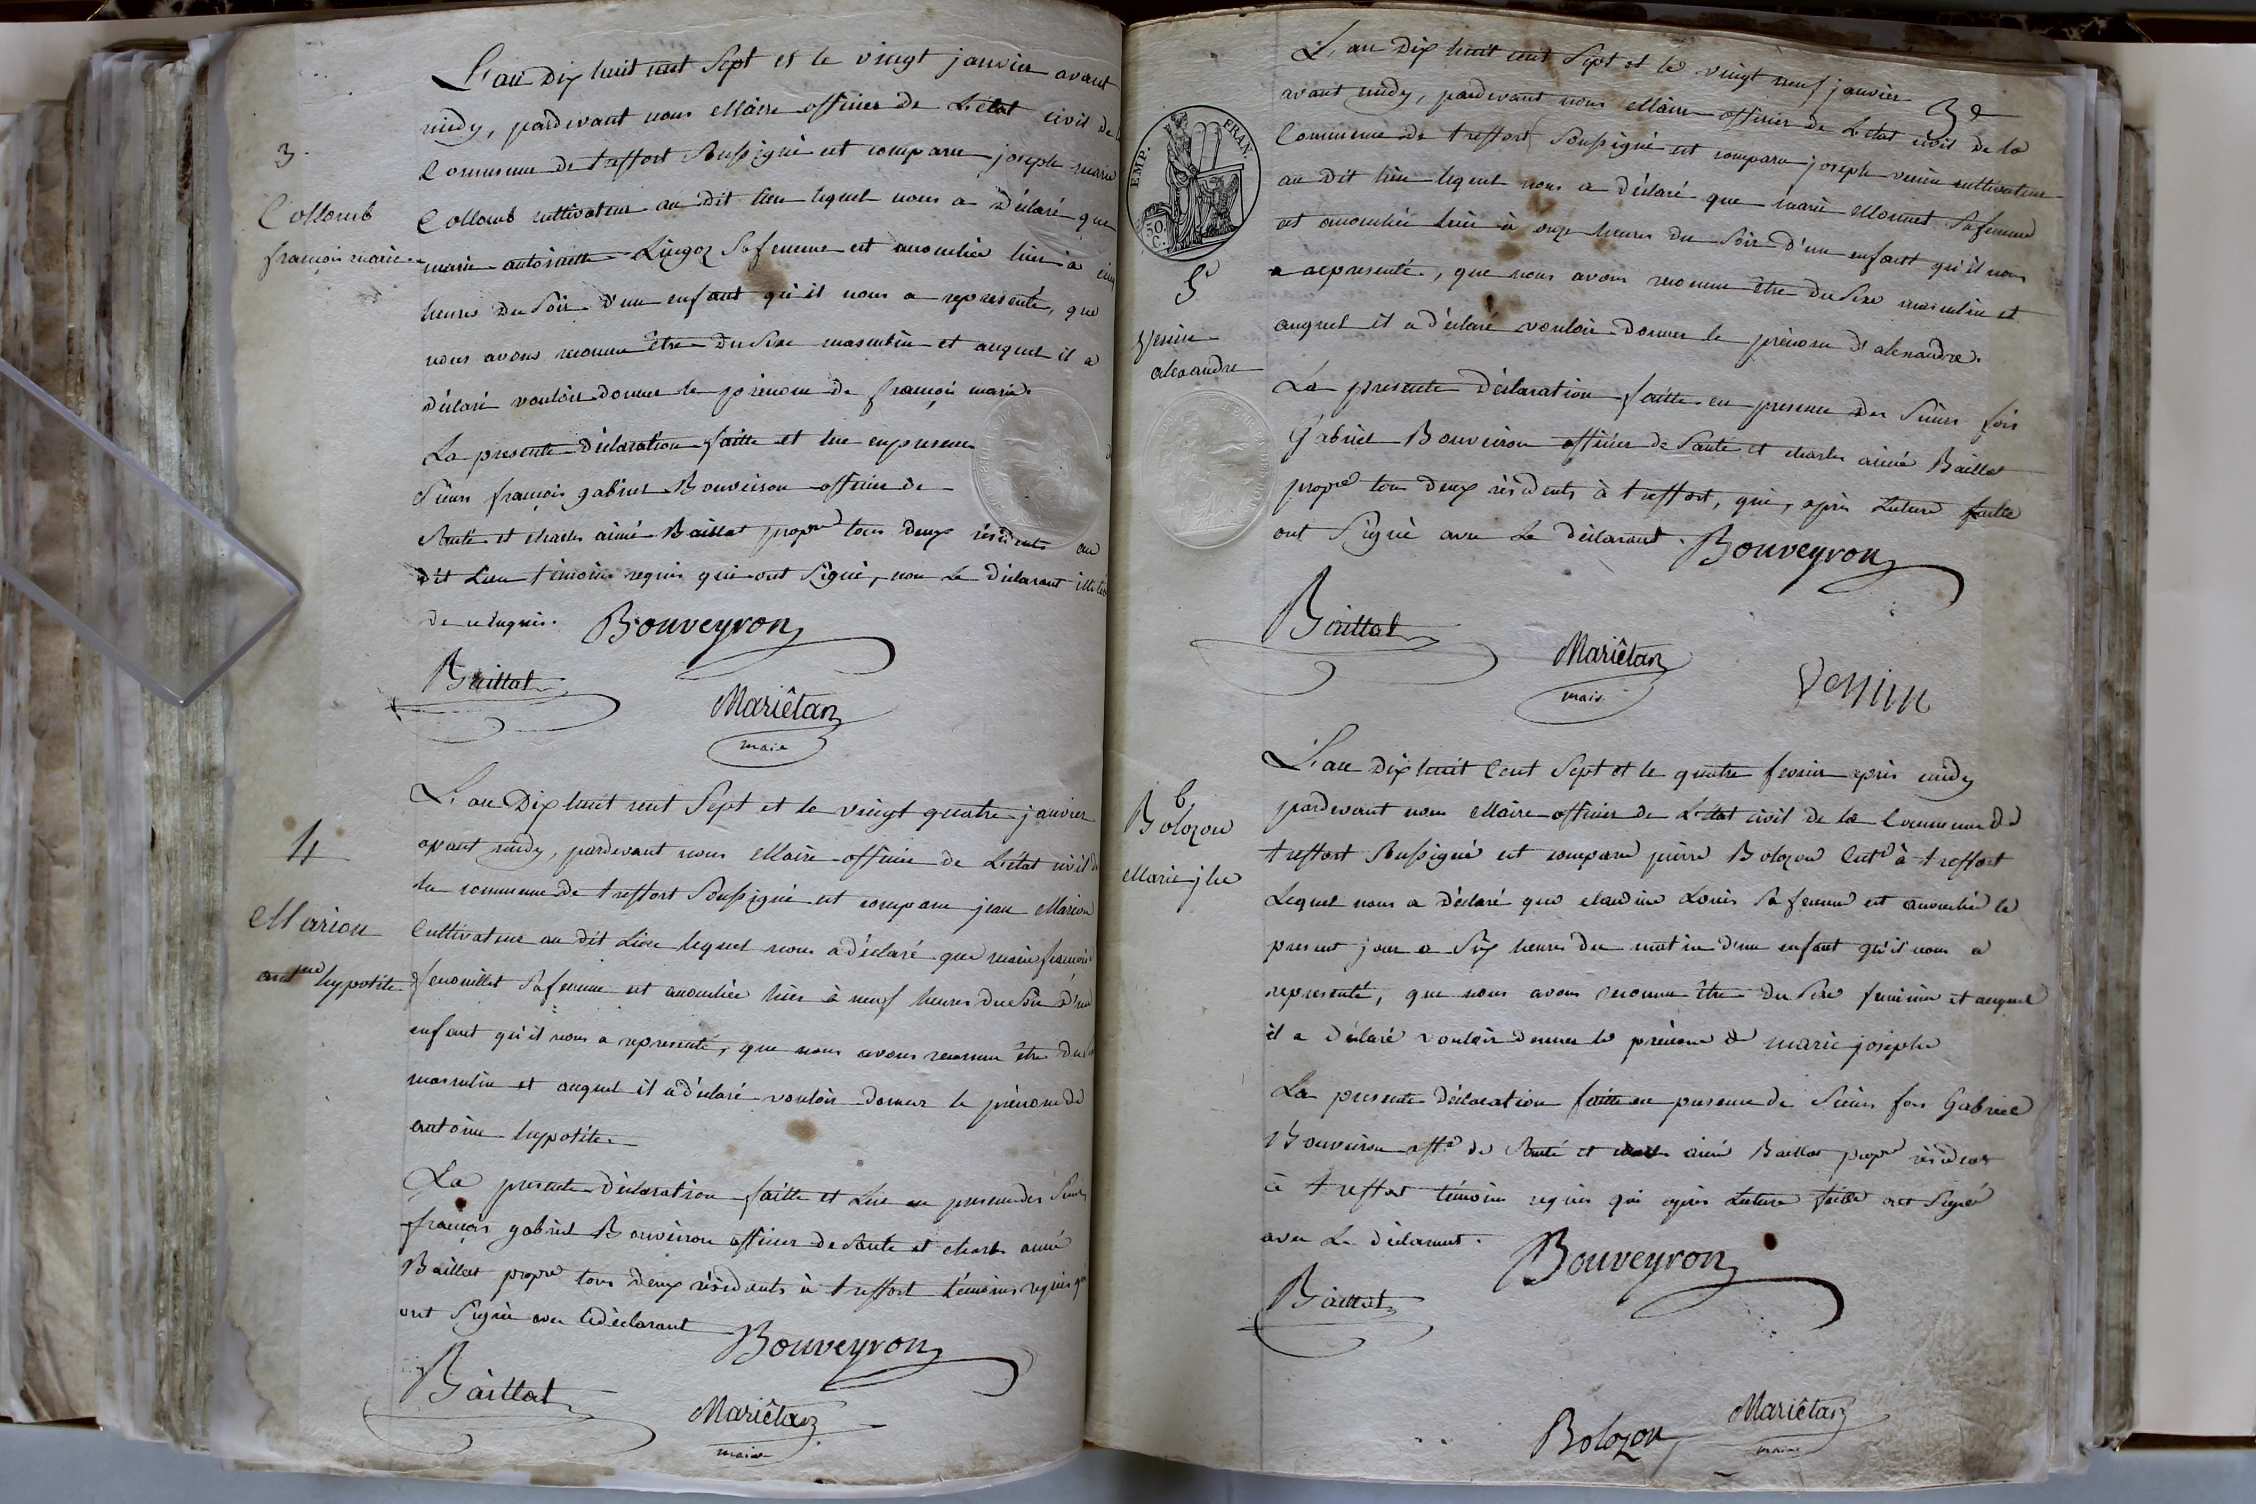 3.
Collomb
françois marie.
L'an dix huit cent sept et le vingt janvier avant
midy, pardevant nous Maire officier de L'état civil de
Commune de treffort Soussigné est comparu joseph marie
Collomb cultivateur au dit lieu lequel nous a déclaré que
marie antoinette Sa femme est accouchée hier à
heures du Soir d'un enfant qu'il nous a représenté, que
nous avons reconnu être du Sexe masculin et auquel il a
déclaré vouloir donner le prénom de françois marie.
La presente déclaration faitte et lue en presence
Sieurs françois gabriel Bouveiron officier de
Santé et charles aimé Baillat propre tous deux résidents au
dit Lieu témoins requis qui ont Signé, non Le déclarant
de ce enquis. Bouveyron
Baillat
Mariêtan
maire
4
Marion
antne hypolite
L'an Dix huit cent Sept et le vingt quatre janvier
avant midy, pardevant nous Maire officier de L'état civil de
la commune de treffort Soussigné est comparu jean Marion
Cultivateur au dit Lieu lequel nous a déclaré que marie
fenouillet Sa femme est accouchée hier à neuf heures du Soir d'un
enfant qu'il nous a representé, que nous avons reconnu être du
masculin et auquel il a déclaré vouloir donner le prénom de
antoine hypolite.
La presente déclaration faitte et Lue en presence des Sieurs
françois gabriel Bouveiron officier de Santé et charles aimé
Baillat propre tous deux résidents à treffort témoins requis qui
ont Signé avec le déclarant Bouveyron
Baillat
Mariêtan
maire
EMP. FRAN.
50.
C.
L'an Dix huit cent Sept et le vingt neuf janvier
avant midy, pardevant nous Maire officier de L'état civil de la
Commune de treffort Soussigné est comparu joseph cultivateur
au dit lieu lequel nous a déclaré que marie Monnet Sa femme
est accouchée hier à onze heures du Soir d'un enfant qu'il nous
a representé, que nous avons reconnu être du Sexe masculin et
auquel il a déclaré vouloir donner le prénom d'alexandre.
5
alexandre
La presente déclaration faitte en presence des Sieurs fois
Gabriel Bouveiron officier de Santé et charles aimé Baillat
propre tous deux résidents à treffort, qui, après Lecture faitte
ont Signé avec Le déclarant. Bouveyron
Baillat
Mariêtan
maire
6
Bolozon
Marie jhe
L'an Dix huit Cent Sept et le quatre fevrier après midy
pardevant nous Maire officier de L'état civil de la Commune de
treffort Soussigné est comparu pierre Bolozon Cultr à treffort
Lequel nous a déclaré que claudine Louis Sa femme est accouchée le
present jour a Six heures du matin d'un enfant qu'il nous a
representé, que nous avons reconnu être du Sexe feminin et auquel
il a déclaré vouloir donner le prénom de marie josephe
La presente déclaration faitte en presence de Sieurs fois Gabriel
Bouveiron offr de Santé et aimé Baillat propre résidents
à treffort témoins requis qui après Lecture faitte ont Signé
avec Le déclarant.
Bouveyron
Baillat
Mariêtan
maire
Bolozon